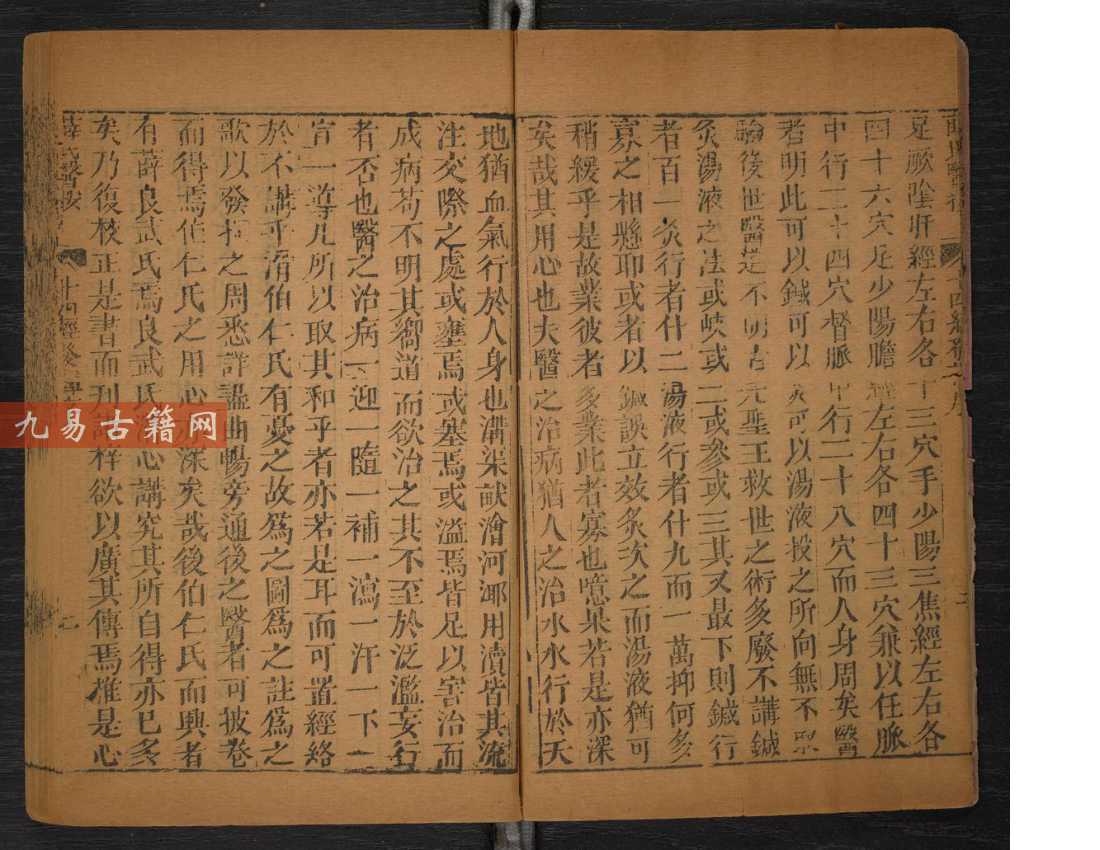 足厥陰肝經左右各十三穴手少陽三焦經左右各
四十六穴足少陽膽經左右各四十三穴兼以任脈
中行二十四穴督脈中行二十八穴而人身周矣醫
者明此可以鍼可以灸可以湯液投之所向無不
驗後世醫道不明古先聖王救世之術多廢不講鍼
灸湯液之法或岐或二或參或三其又最下則鍼行
者百一灸行者什二湯液行者什九而一萬抑何多
寡之相懸耶或者以鍼誤立效灸次之而湯液猶可
稍緩乎是故業彼者多業此者寡也噫果若是亦深
矣哉其用心也夫醫之治病猶人之治水水行於天
地猶血氣行於人身也溝渠畎澮河泖用瀆皆其流
注交際之處或壅焉或塞焉或溢焉皆足以害治而
成病苟不明其嚮道而欲治之其不至於泛濫妄行
者否也醫之治病一迎一隨一補一瀉一汗一下一
宣一導凡所以取其和乎者亦若是耳而可置經絡
於不講乎滑伯仁氏有憂之故為之圖為之註為之
歌以發揮之周悉詳
曲暢旁通後之醫者可披卷
而得焉伯仁氏之用心深矣哉後伯仁氏而興者
有薛良武氏焉良武氏
心講究其所自得亦已多
矣乃復校正是書而刊
梓欲以廣其傳焉推是心
九易古籍网